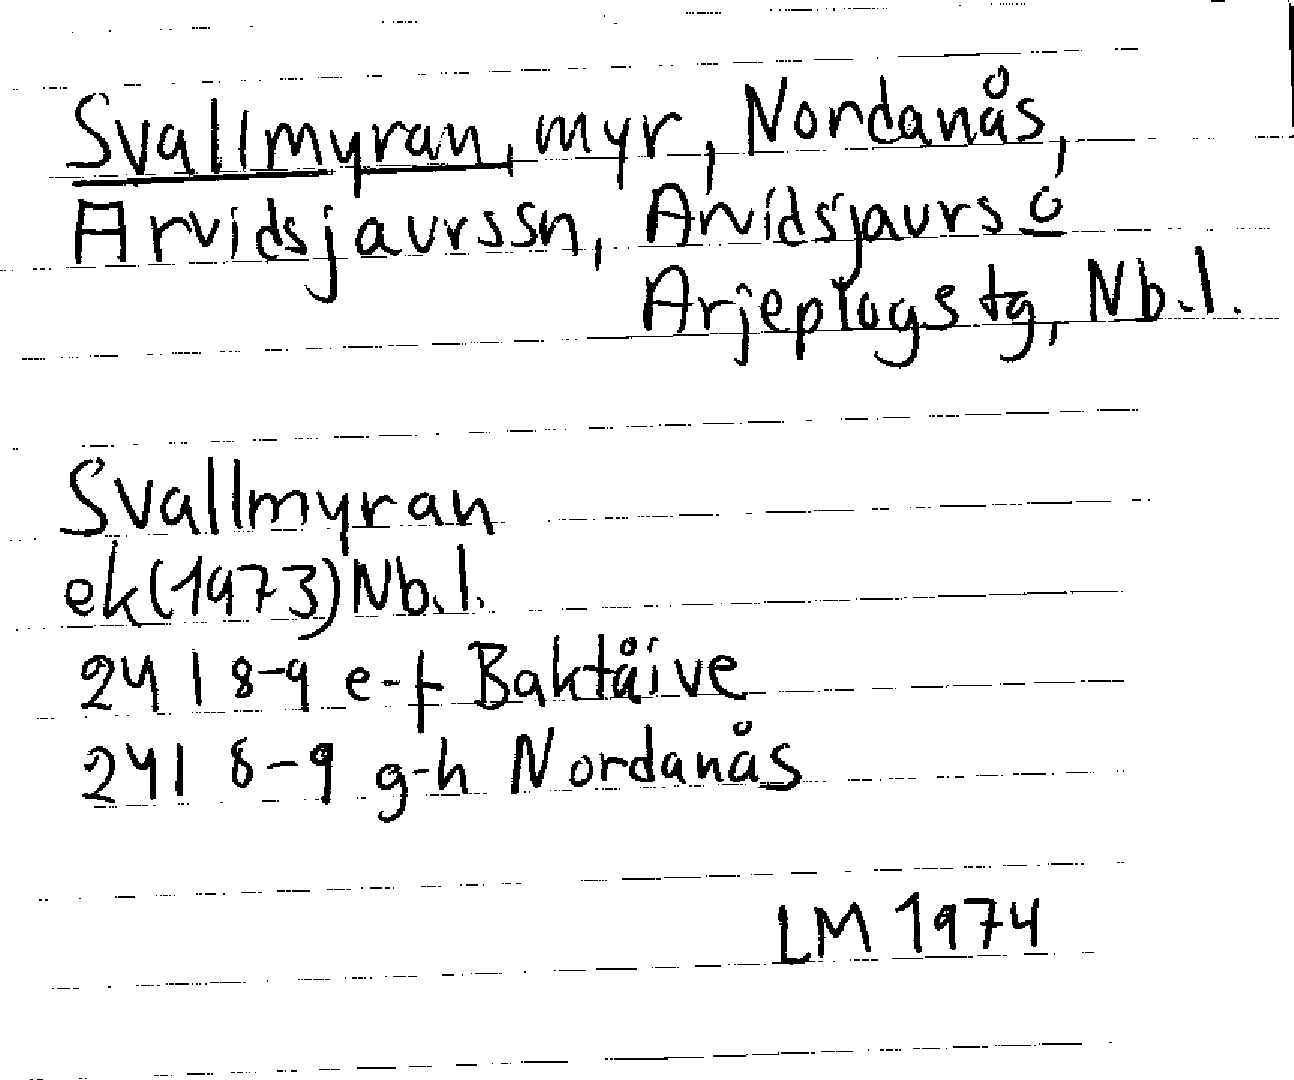 Svallmyran, myr, Nordanås,
Arvidsjaurssn, Arvidsjaurs o
Arjeplogs tg, Nb.l.
Svallmyran
ek(1973)Nb.l.
24 I 8-9 e-f Baktåive
24 I 8-9 g-h Nordanås
LM 1974